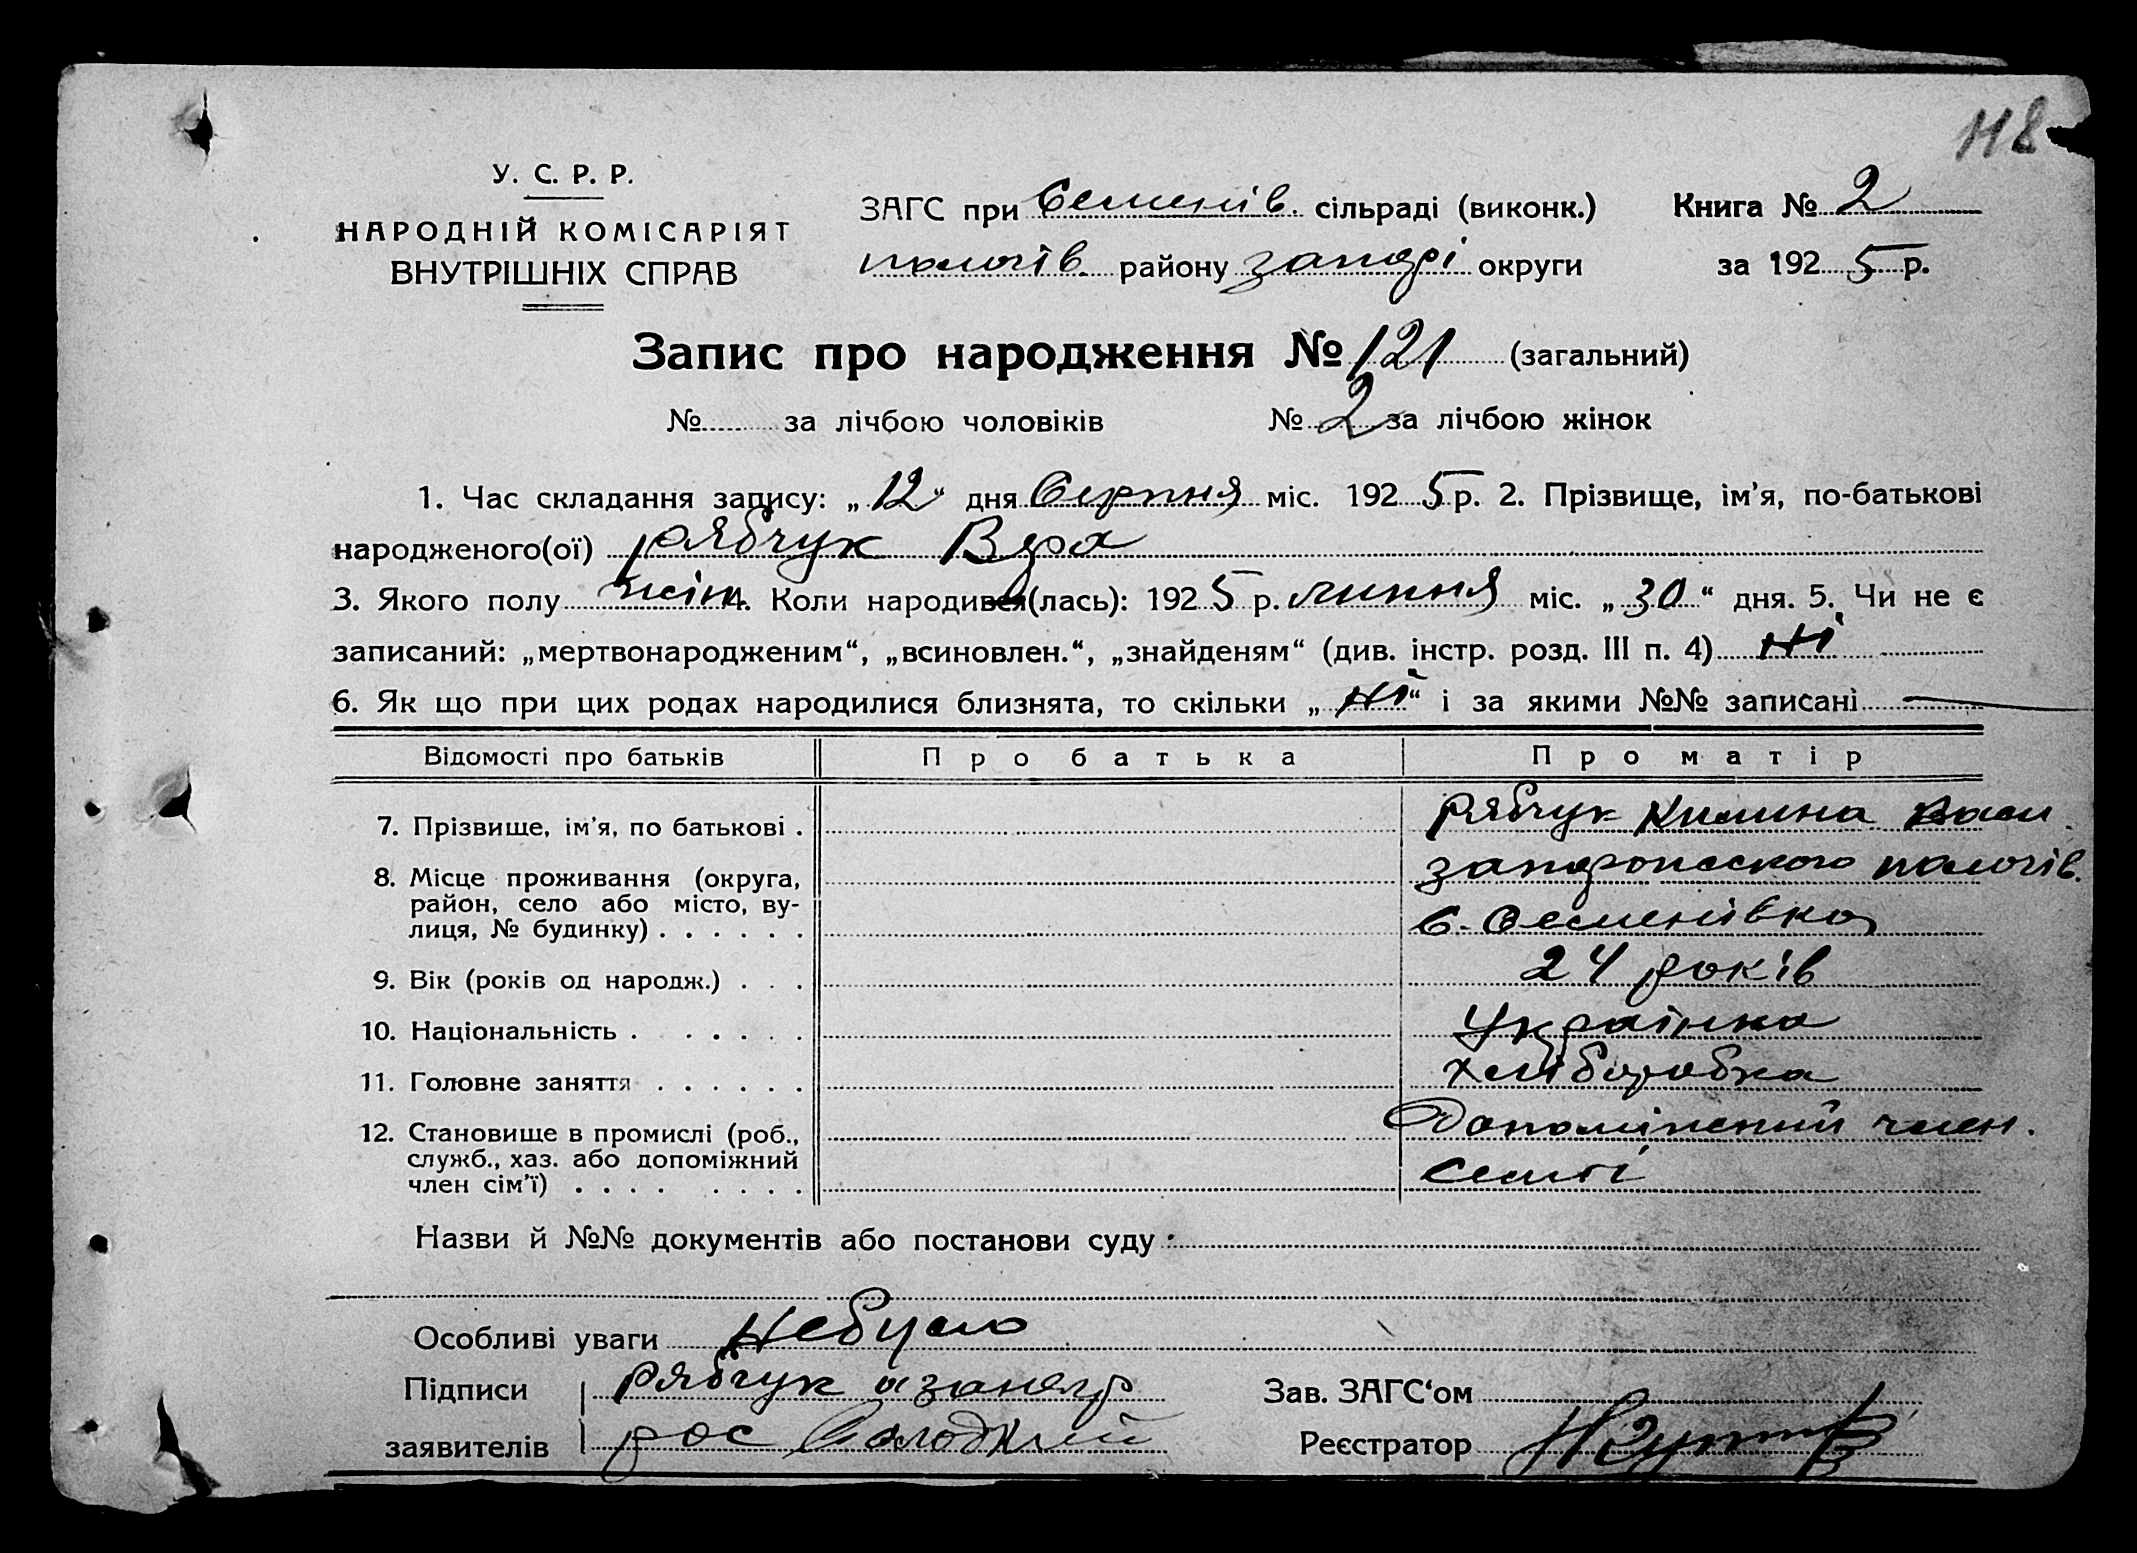 118
У. С. Р. Р.
НАРОДНІЙ КОМІСАРІЯТ
ВНУТРІШНІХ СПРАВ
ЗАГС при Семенів. сільраді (виконк.) Книга № 2
пологів. району запорі округи за 1925 р.
Запис про народження № 121 (загальний)
№ за лічбою чоловіків № 2 за лічбою жінок
1. Час складання запису: „12“ дня Серпня міс. 1925 р. 2. Прізвище, ім’я, по-батькові
народженого(ої) Рябчук Віра
3. Якого полу жін 4. Коли народився(лась): 1925 р. липня міс. „30“ дня. 5. Чи не є
записаний: „мертвонародженим“, „всиновлен.“, „знайденям“ (див. інстр. розд. III п. 4) Ні
6. Як що при цих родах народилися близнята, то скільки „Ні“ і за якими №№ записані —
Відомості про батьків Про батька Про матір
7. Прізвище, ім’я, по батькові . Рябчук Килина Васи.
8. Місце проживання (округа, пологів.
район, село або місто, ву-
лиця, № будинку) . . . . . . С. Семенівка
9. Вік (років од народж.) . . . 24 років
10. Національність . . . . . . Українка
11. Головне заняття . . . . . . хліборобка
12. Становище в промислі (роб., член.
служб., хаз. або допоміжний
член сім’ї) . . . . . . . . семї
Назви й №№ документів або постанови суду :
Особливі уваги Небуло
Підписи Рябчук а за негр
заявителів рос
Зав. ЗАГС‘ом
Реєстратор